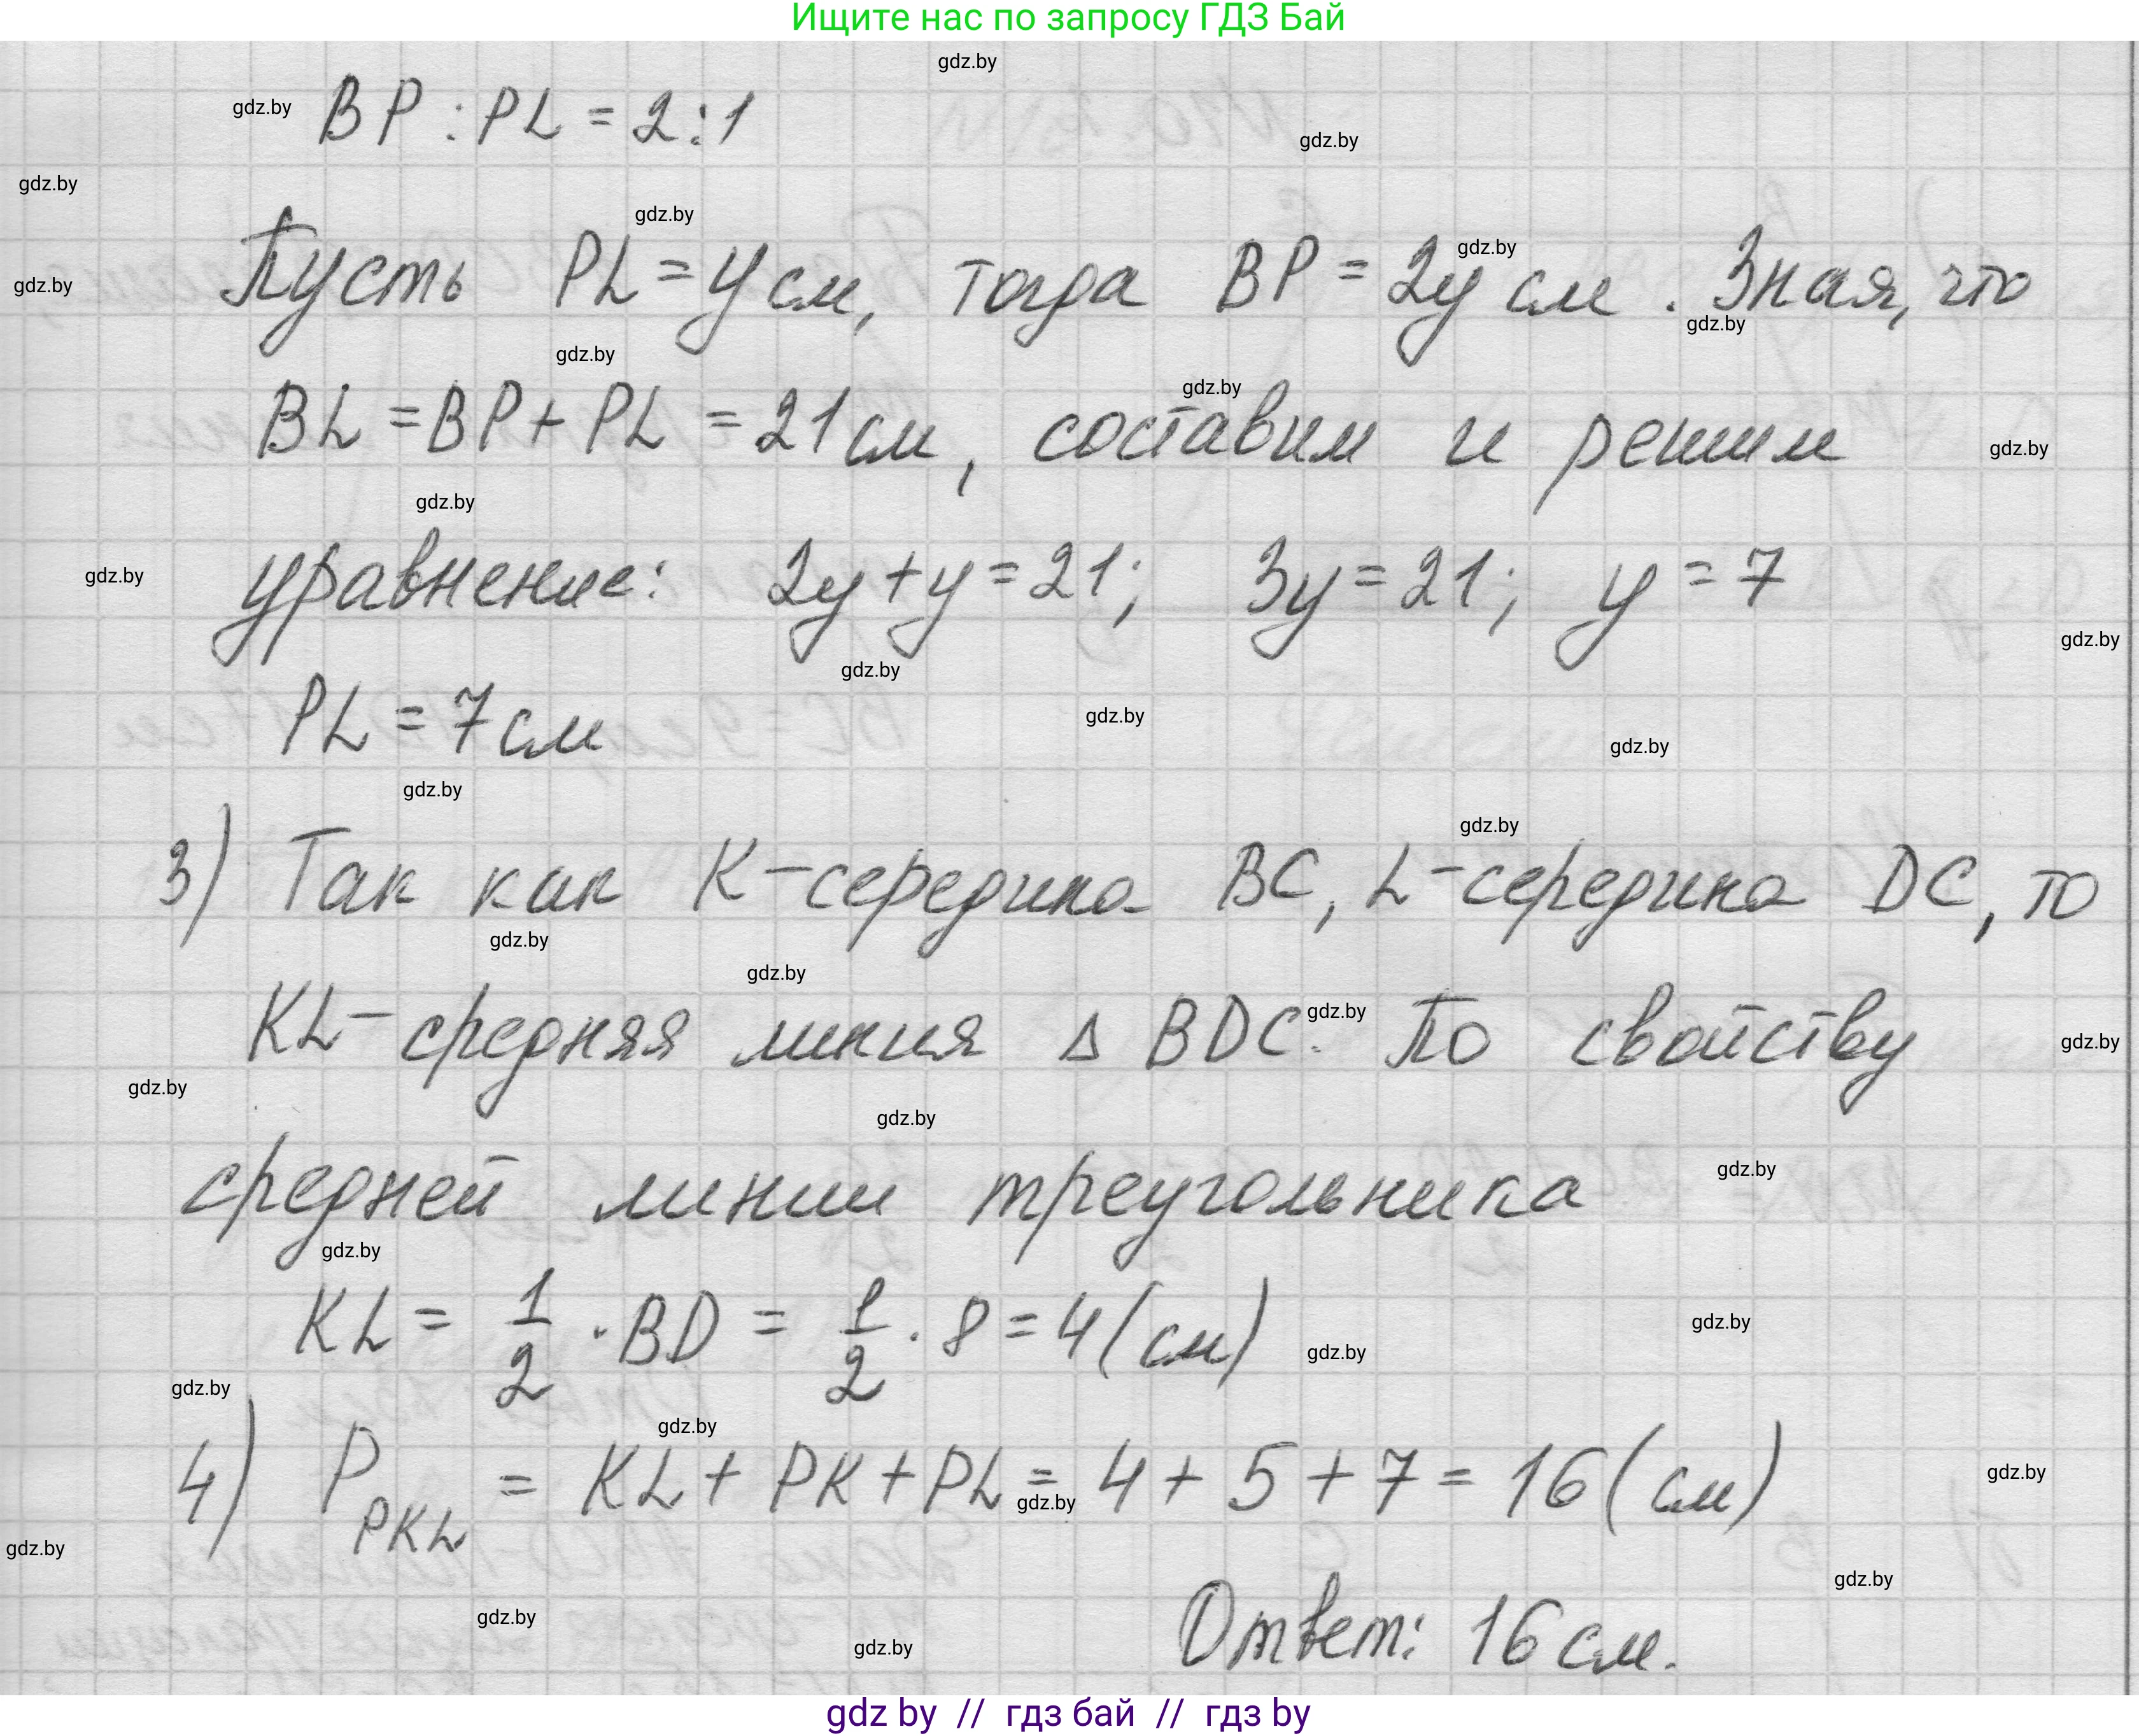 Ищите нас по запросу ГДЗ Бай
gdz.by
gdz.by BP : PL = 2 : 1
gdz.by
gdz.by
gdz.by
gdz.by
Пусть PL = y см, тогда BP = 2y см. Зная, что
gdz.by
gdz.by
gdz.by
gdz.by
BL = BP + PL = 21 см, составим и решим
gdz.by
gdz.by
gdz.by
уравнение: 2y + y = 21; 3y = 21; y = 7
gdz.by
gdz.by
PL = 7 см
gdz.by
gdz.by
gdz.by
gdz.by
3) Так как K - середина BC, L - середина DC, то
gdz.by
gdz.by
gdz.by
KL - средняя линия Δ BDC. По свойству
gdz.by
gdz.by
gdz.by
средней линии треугольника
gdz.by
gdz.by
KL = 1/2 · BD = 1/2 · 8 = 4 (см)
gdz.by
gdz.by
gdz.by
gdz.by
4) P PKL = KL + PK + PL = 4 + 5 + 7 = 16 (см)
gdz.by
gdz.by
gdz.by
gdz.by
Ответ: 16 см.
gdz.by
gdz.by
gdz by // гдз бай // гдз by